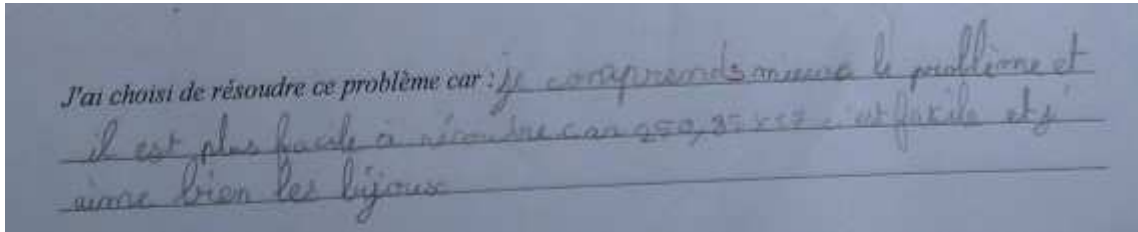 J'ai choisi de résoudre ce problème car : je comprends mieux le problème et
il est plus facile à résoudre car 250,35 x 17 c'est facile et j'
aime bien les bijoux